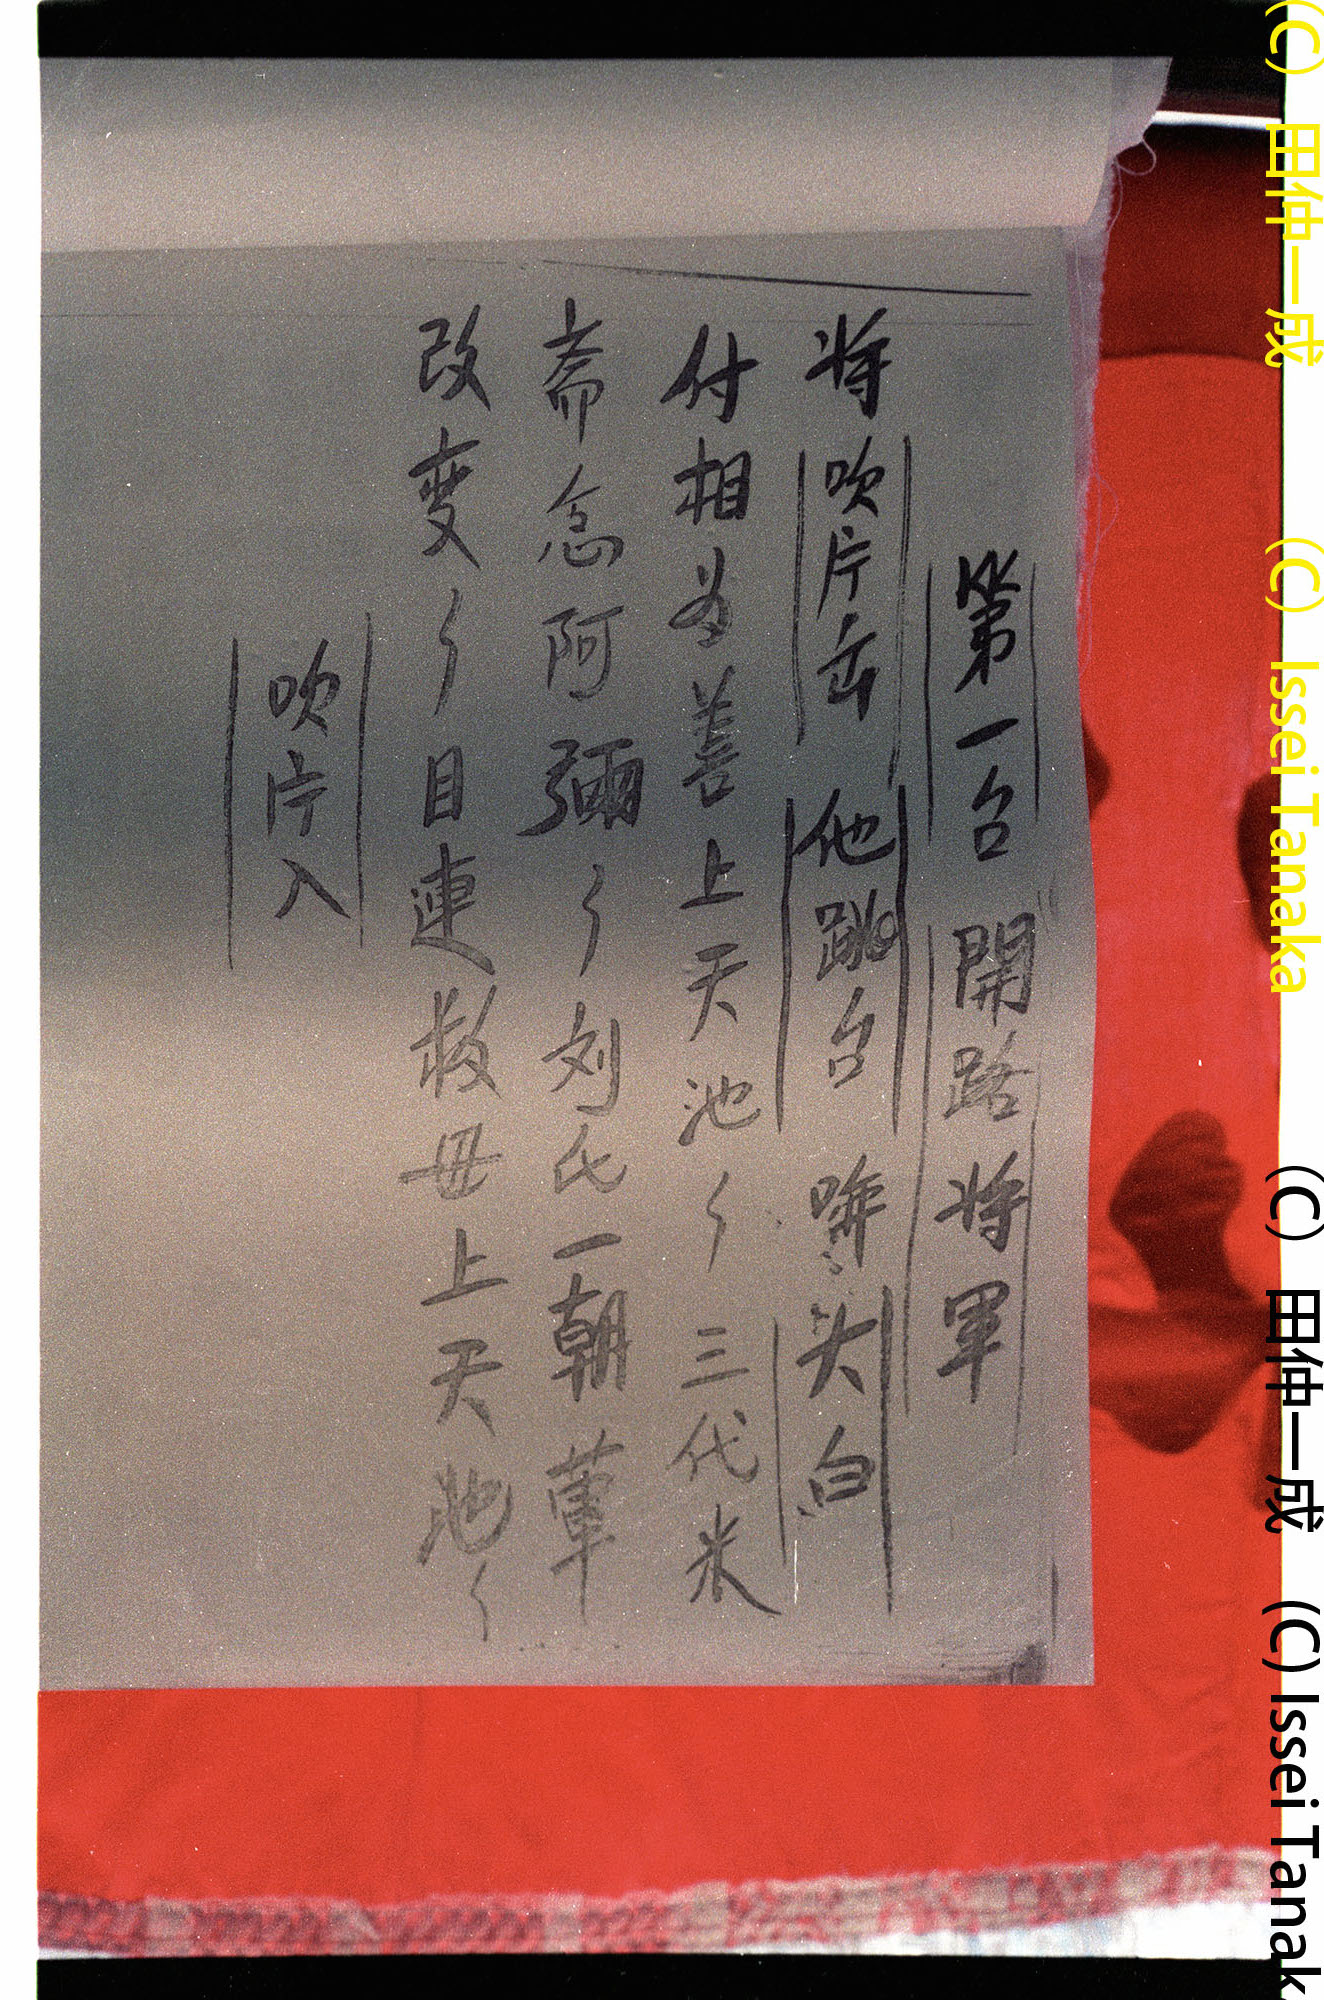 第一台 開路将軍
将 吹庁出 他跳台 嗶 大白
付相為善上天池〻三代米
斋念阿彌〻刘氏一朝葷
改变〻目連救母上天池〻
吹庁入
(C) 田仲一成 (C) Issei Tanaka (C) 田仲一成 (C) Issei Tanak